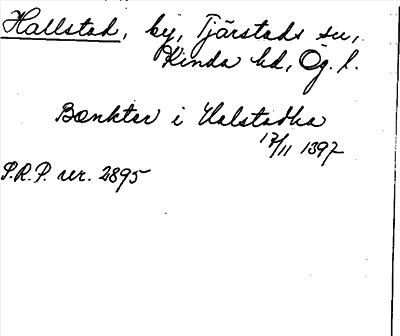 Hallstad, by, Tjärstads sn,
Kinda hd, Ög. l.
Bænkter i Halstadha
17/11 1397
P.R.P. nr. 2895